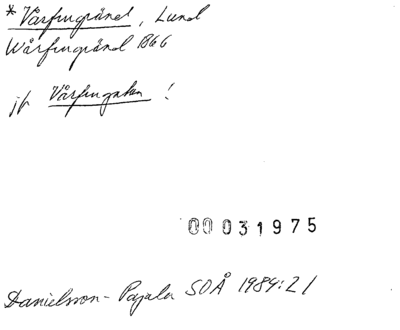 * Vårfrugränd, Lund
Wårfrugränd 1866
jfr Vårfrugatan !
00031975
Danielsson-Pajala SOÅ 1989:21